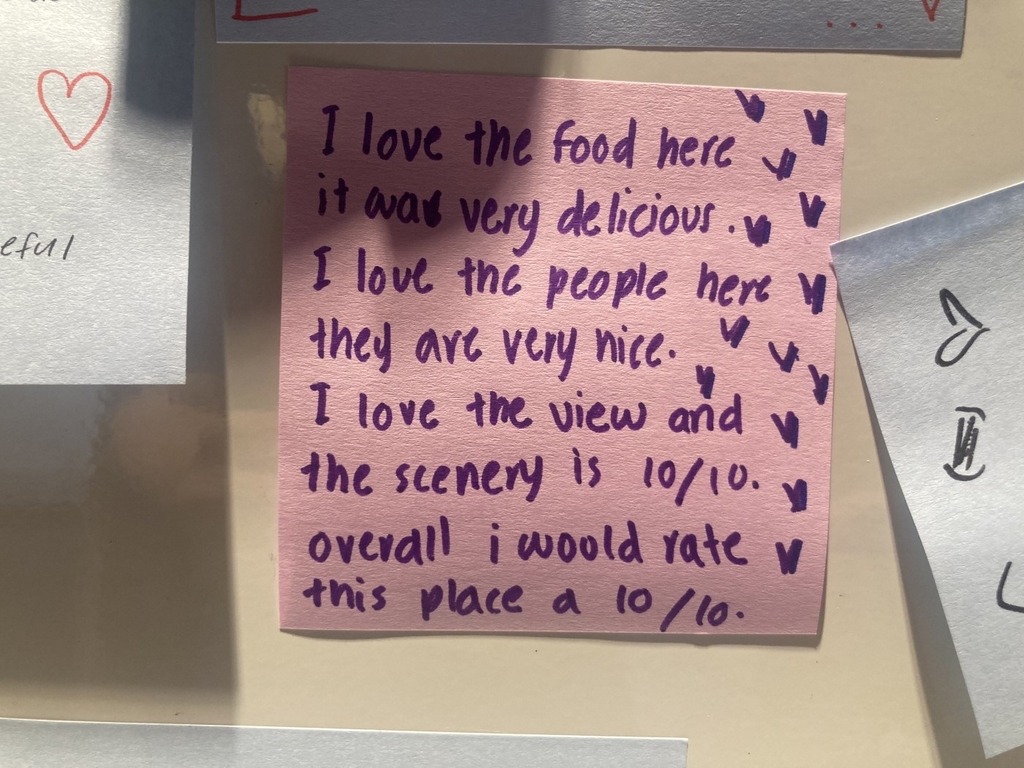 I love the food here
it was very delicious.
I love the people here
they are very nice.
I love the view and
the scenery is 10/10.
overall i would rate
this place a 10/10.